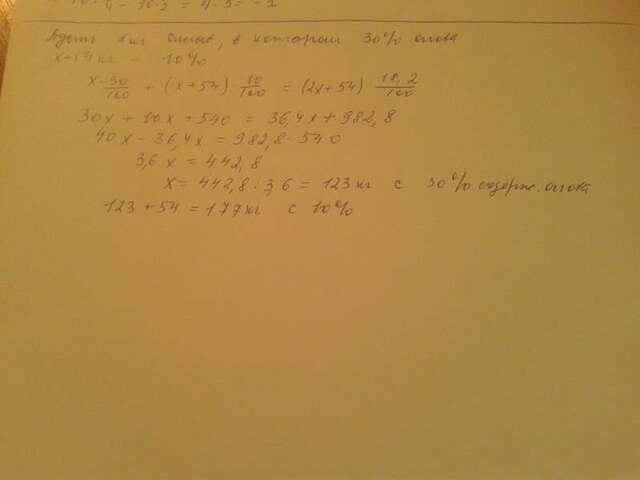 - 10 · 2 = 4 - 5 = -1
Пусть x кг сплав, в котором 30% олова
x+54 кг - 10%
x · 30/100 + (x+54) · 10/100 = (2x+54) · 18,2/100
30x + 10x + 540 = 36,4x + 982,8
40x - 36,4x = 982,8 - 540
3,6x = 442,8
x = 442,8 : 3,6 = 123 кг с 30% содерж. олова
123 + 54 = 177 кг с 10%